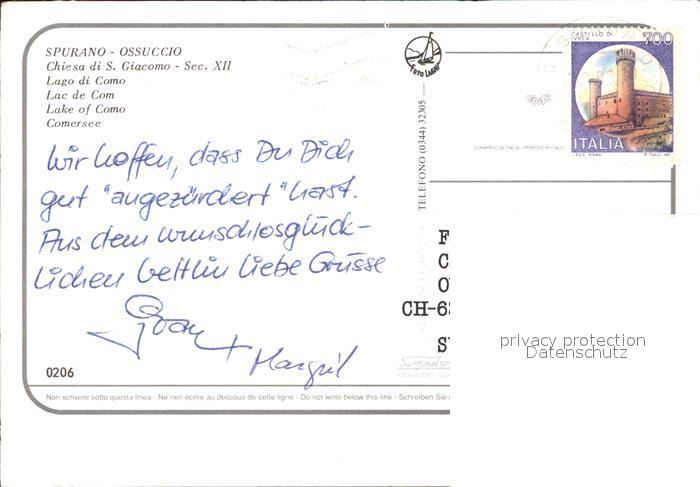 SPURANO - OSSUCCIO
Chiesa di S. Giacomo - Sec. XII
Lago di Como
Lac de Com
Lake of Como
Comersee
Wir hoffen, dass Du Dich
gut "angezürchert" hast.
Aus dem wunschlosglück-
lichen Veltlin liebe Grüsse
+ Margrit
0206
Non scrivere sotto questa linea - Ne rien écrire au dessous de cette ligne - Do not write below this line - Schreiben Sie
FOTO LARIO
TELEFONO (0344) 32305 -
STAMPATO IN ITALIA - PRINTED IN ITALY
CASTELLO DI
IVREA
700
ITALIA
F
C
CH-6
S
privacy protection
Datenschutz